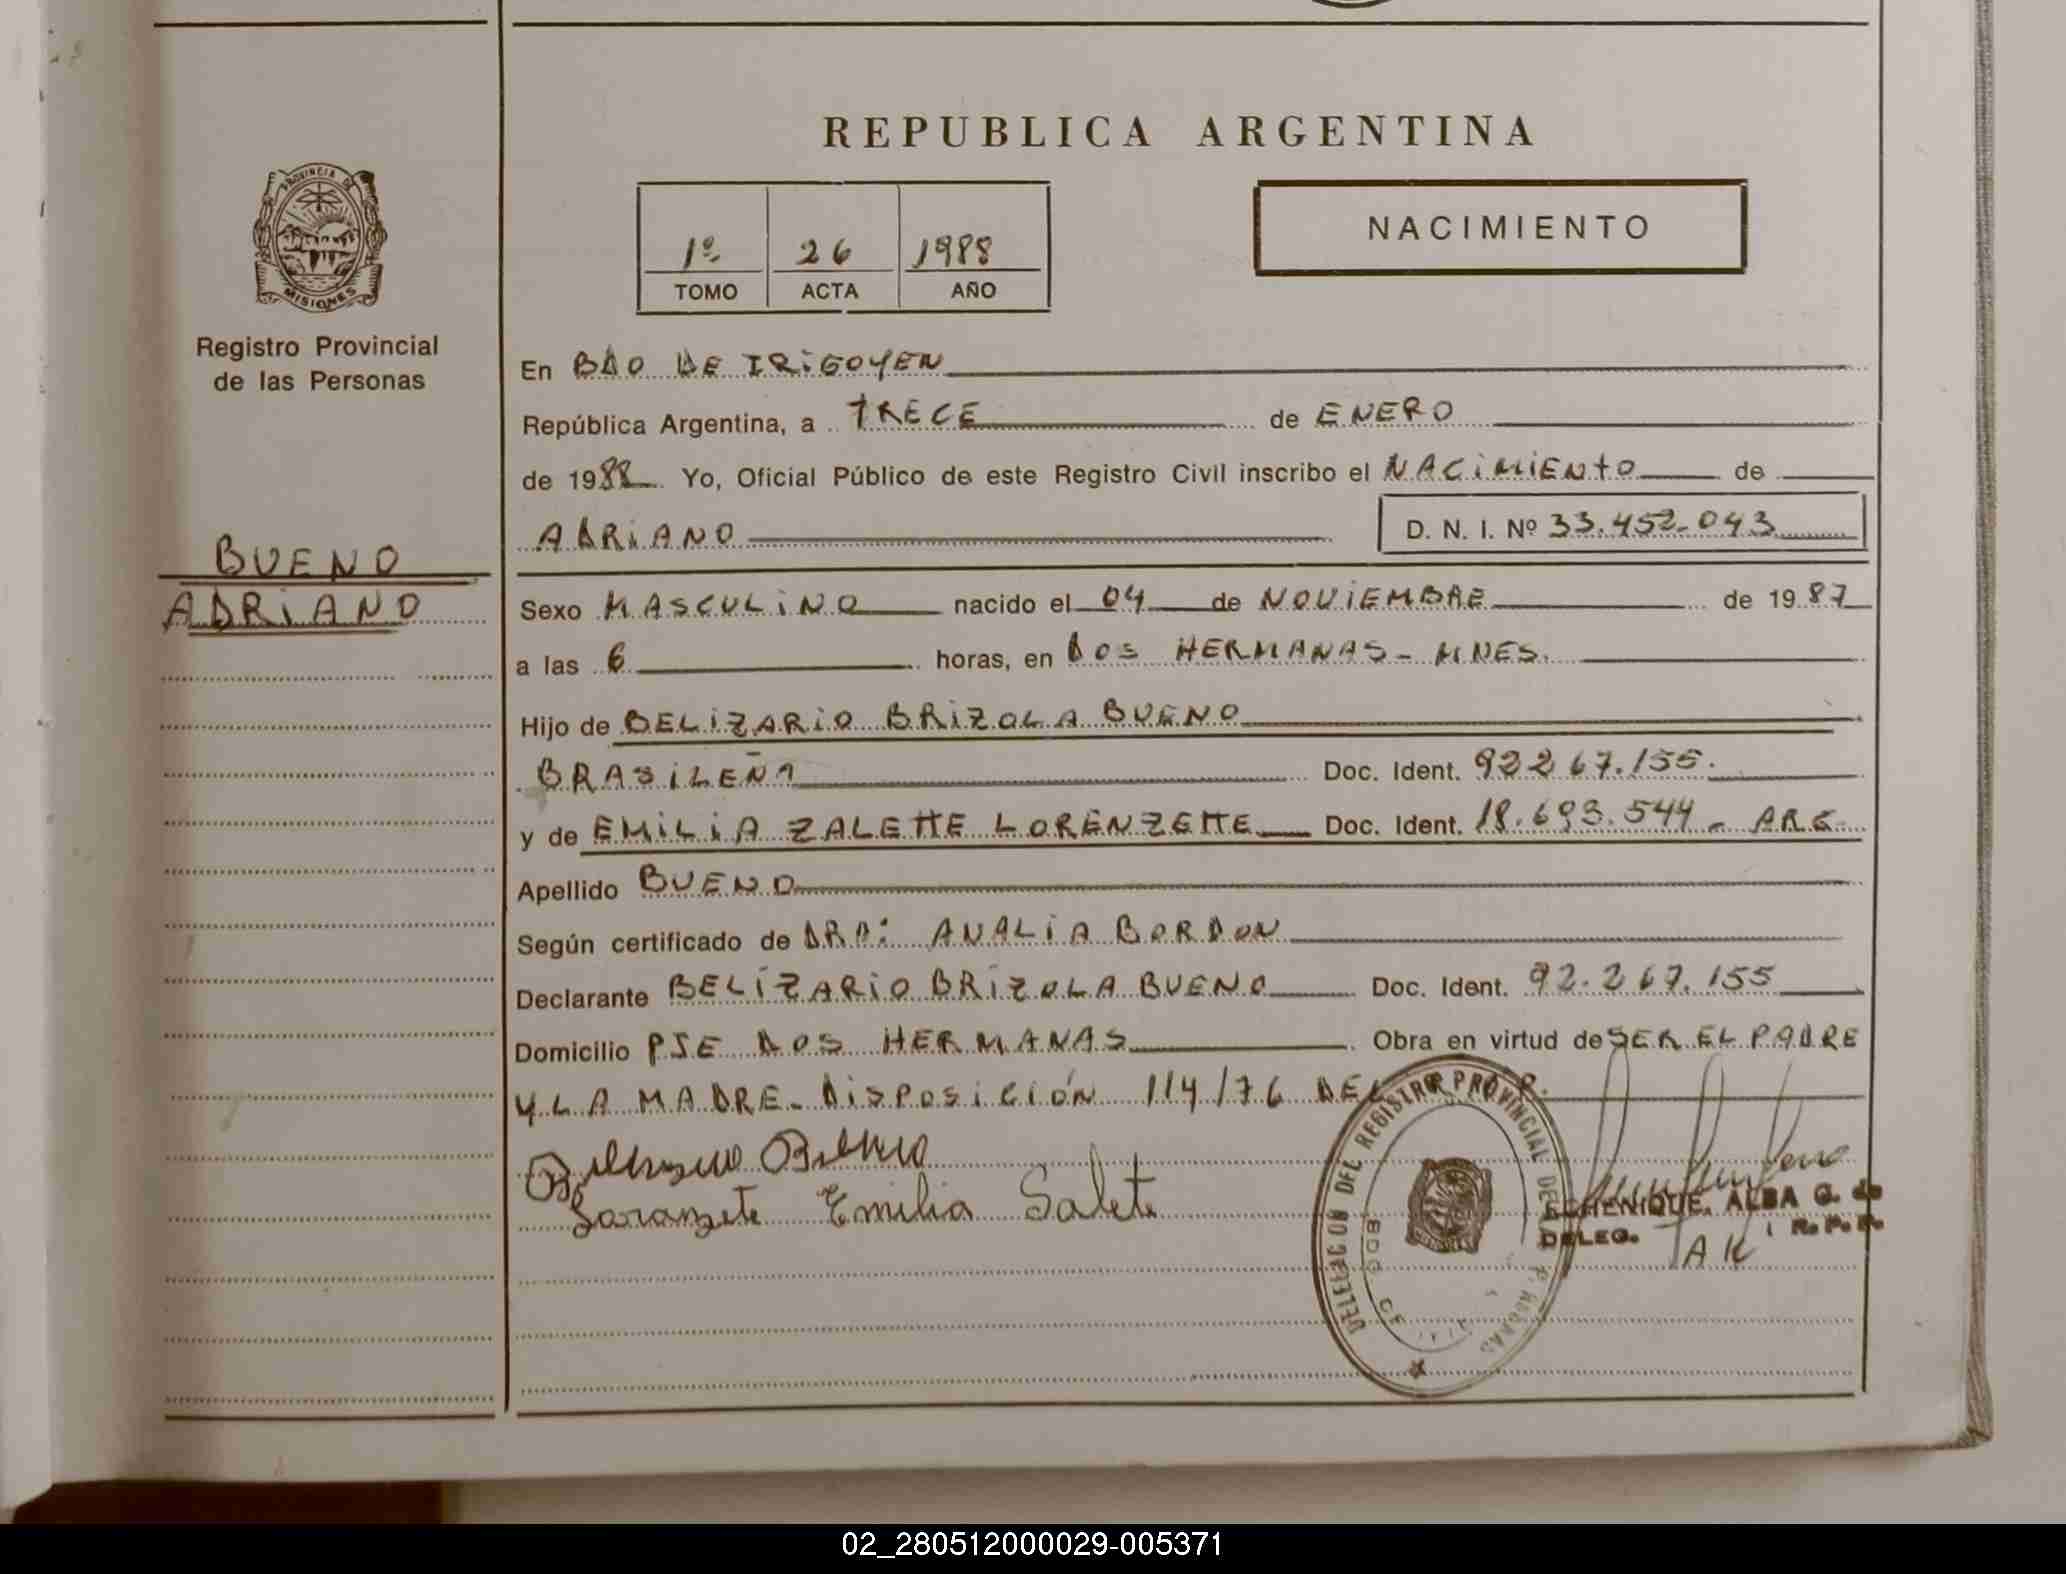 REPUBLICA ARGENTINA
PROVINCIA DE
MISIONES
Registro Provincial
de las Personas
BUENO
ADRIANO
1º 26 1988
TOMO ACTA AÑO
NACIMIENTO
En BDO DE IRIGOYEN
República Argentina, a TRECE de ENERO
de 1988 Yo, Oficial Público de este Registro Civil inscribo el NACIMIENTO de
ADRIANO D. N. I. Nº 33.452.043
Sexo MASCULINO nacido el 04 de NOVIEMBRE de 1987
a las 6 horas, en DOS HERMANAS - MNES.
Hijo de BELIZARIO BRIZOLA BUENO
BRASILEÑA Doc. Ident. 92267.155.
y de EMILIA ZALETTE LORENZETTE Doc. Ident. 18.693.544 - ARG
Apellido BUENO
Según certificado de DRA: ANALIA BORDON
Declarante BELIZARIO BRIZOLA BUENO Doc. Ident. 92.267.155
Domicilio PJE DOS HERMANAS Obra en virtud de SER EL PADRE
Y LA MADRE - DISPOSICIÓN 114/76 DEL
Emilia Salete
DELEGACION DEL REGISTRO PROVINCIAL DE
ALBA G. de
DELEG. R. P. P.
AK
02_280512000029-005371